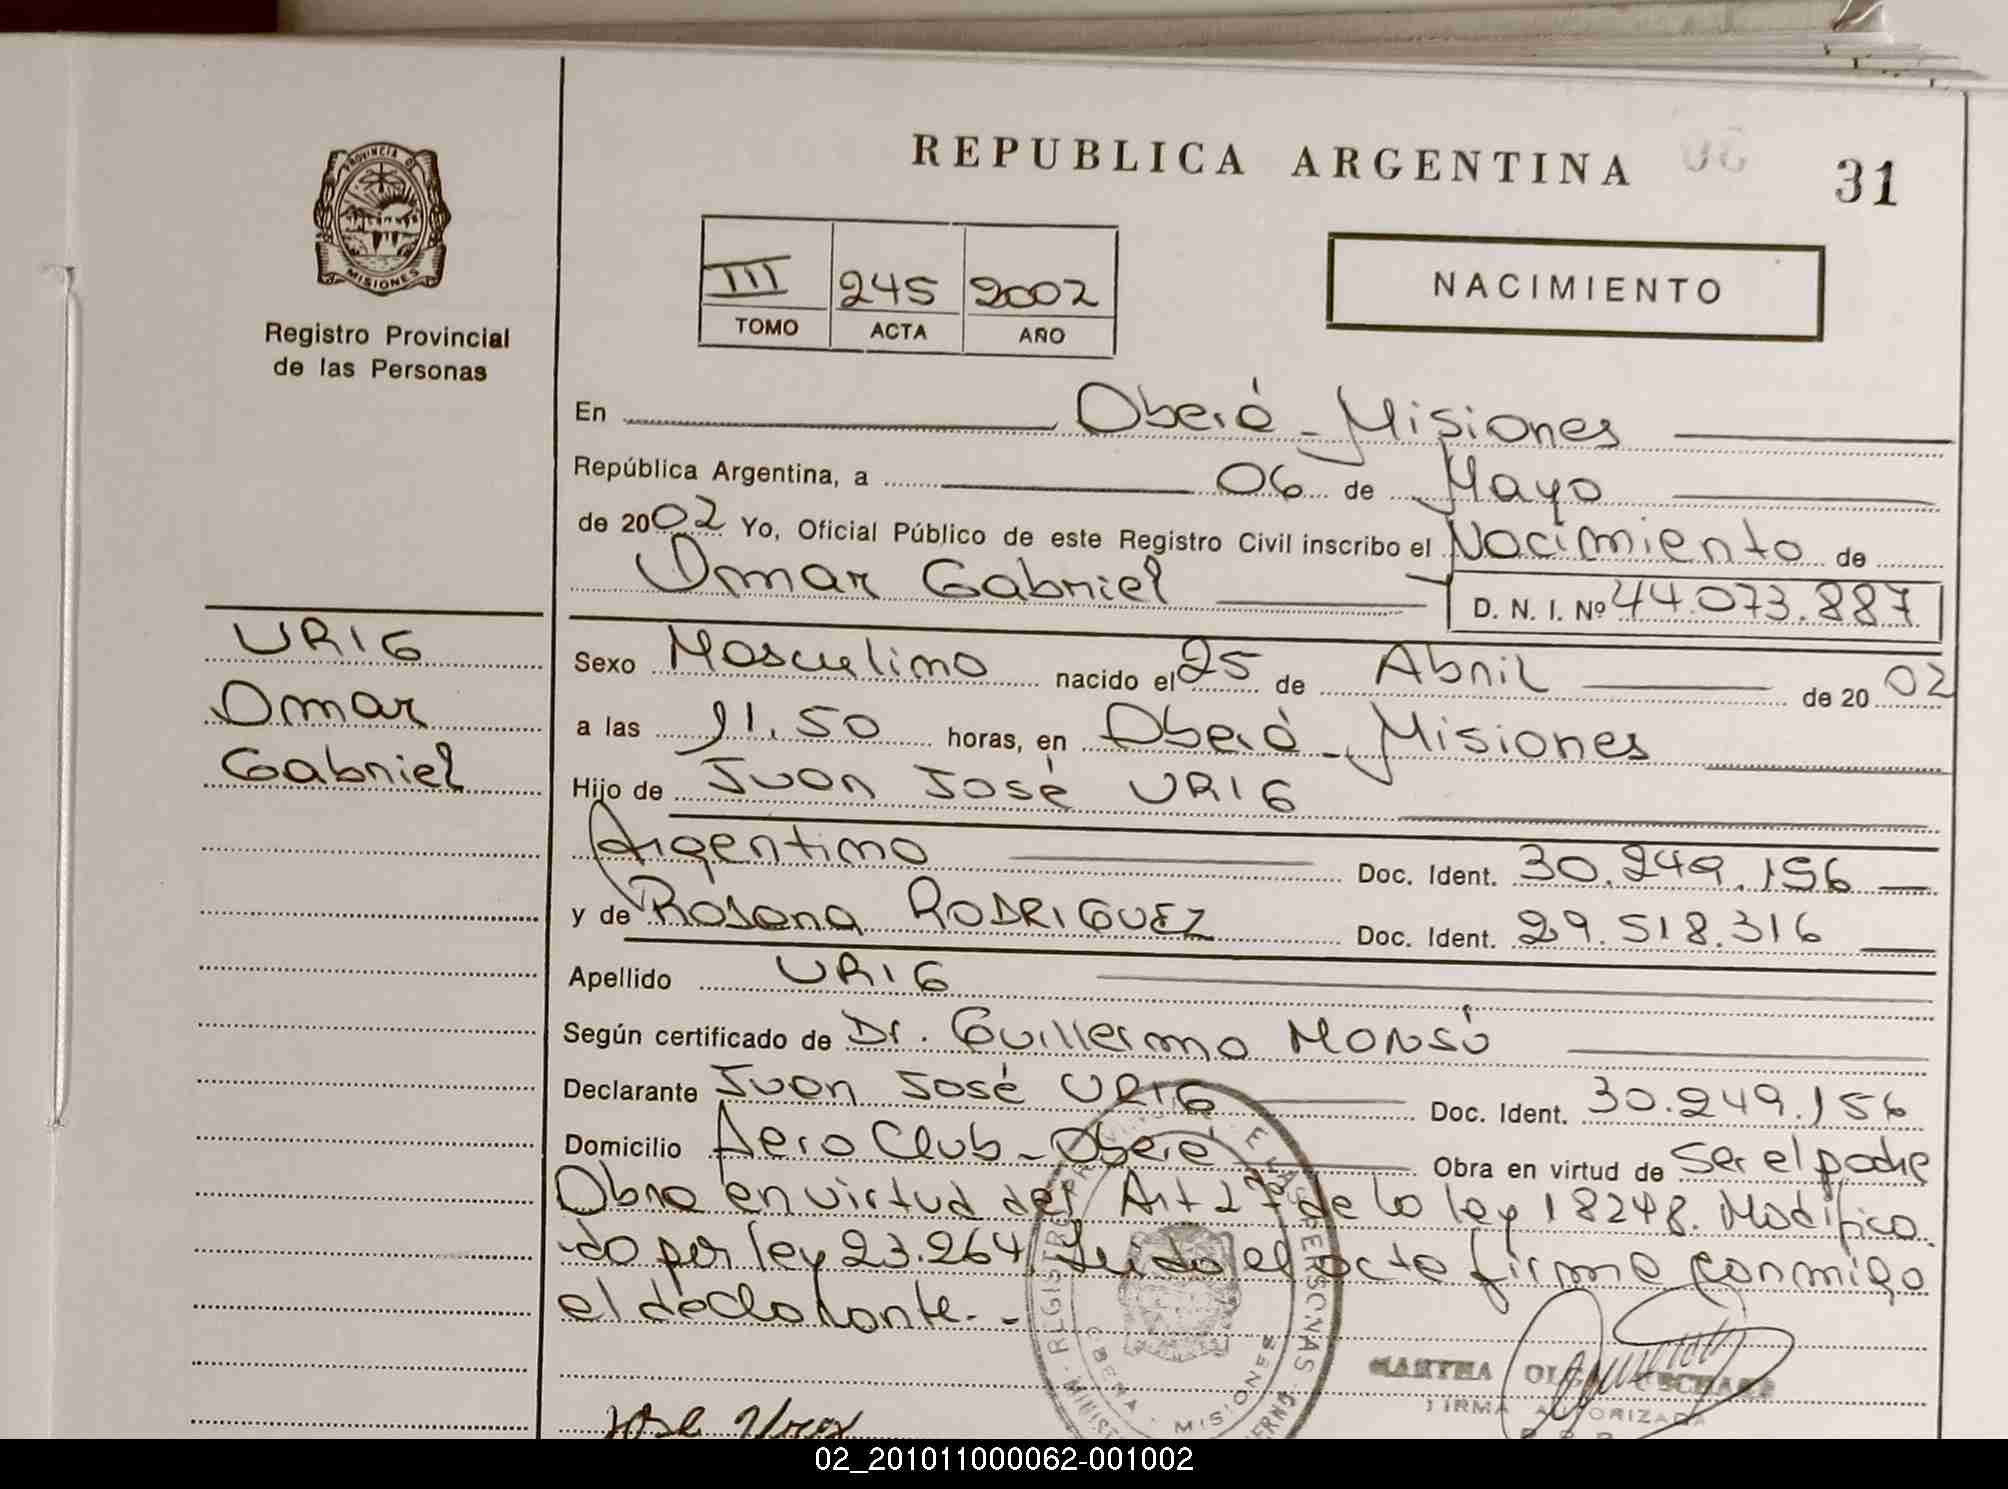 REPUBLICA ARGENTINA
31
PROVINCIA DE
MISIONES
Registro Provincial
de las Personas
III 245 2002
TOMO ACTA AÑO
NACIMIENTO
En Oberá - Misiones
República Argentina, a 06 de Mayo
de 2002 Yo, Oficial Público de este Registro Civil inscribo el Nacimiento de
Omar Gabriel D. N. I. Nº 44.073.887
URIG
Omar
Gabriel
Sexo Masculino nacido el 25 de Abril de 2002
a las 11.50 horas, en Oberá - Misiones
Hijo de Juan José URIG
Argentino Doc. Ident. 30.249.156
y de Rosana RODRIGUEZ Doc. Ident. 29.518.316
Apellido URIG
Según certificado de Dr. Guillermo MONSÚ
Declarante Juan José URIG Doc. Ident. 30.249.156
Domicilio Aero Club - Oberá Obra en virtud de Ser el padre
Obra en virtud del Art 2º de la ley 18248. Modifica
do por ley 23.264. Leido el acta firma conmigo
el declarante. -
MARTHA
FIRMA AUTORIZADA
MISIONES
02_201011000062-001002